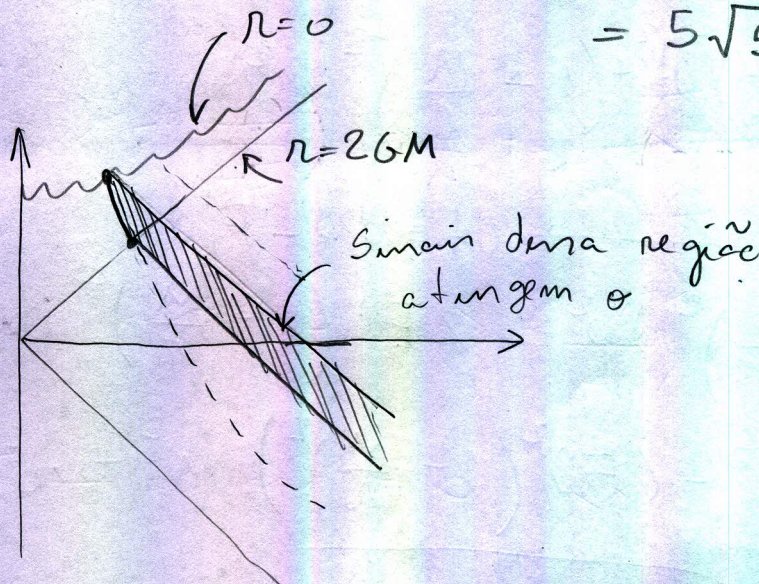 r=0
= 5√5
r=2GM
Sinais dessa região
atingem o